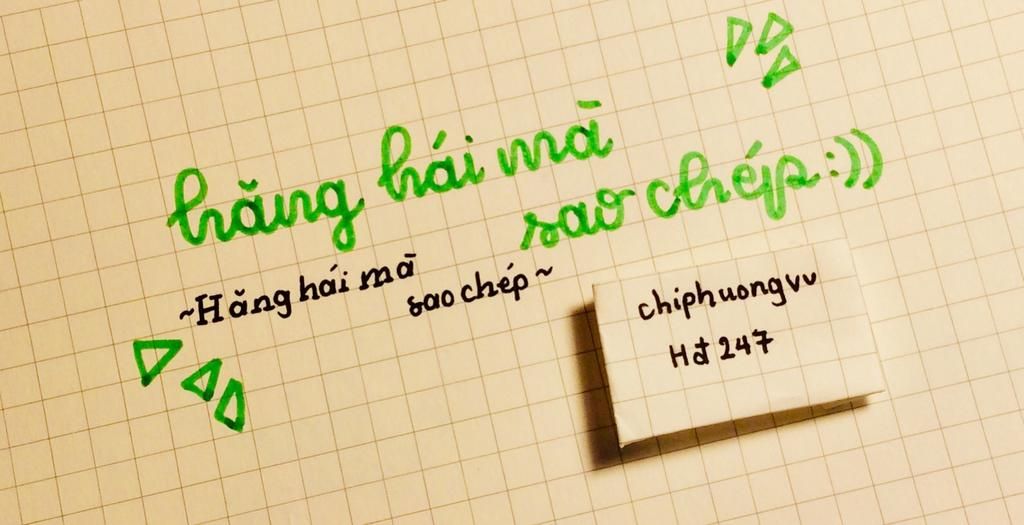 hăng hái mà
sao chép :))
~Hăng hái mà
sao chép~
chiphuongvv
Hđ 247